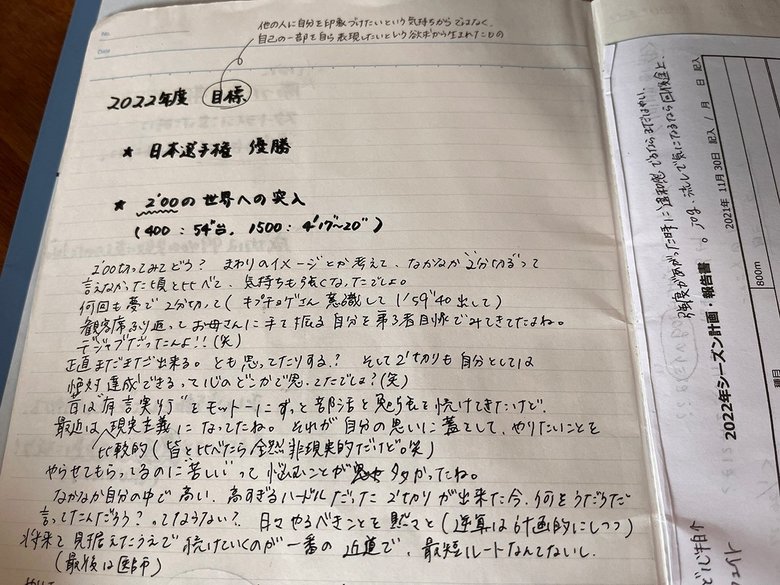 No.
Date
他の人に自分を印象づけたいという気持ちからではなく、
自己の一部を自ら表現したいという欲求から生まれたもの
2022年度 目標
★ 日本選手権 優勝
★ 2'00の世界への突入
(400 : 54"台, 1500 : 4'17"~20")
2'00切ってみてどう? まわりのイメージとか考えて、なかなか“2分切る”って
言えなかった頃と比べて、気持ちも強くなったでしょ。
何回も夢で2分切って(キプチョゲさん意識して1'59"40出して)
観客席ふり返ってお母さんに手を振る自分を第3者目線でみてきてたよね。
デジャブだったんよ!!(笑)
正直まだまだ出来る。とも思ってたりする? そして2'切りも自分としては
絶対達成できるって心のどこかで思ってたでしょ?(笑)
昔は“有言実行”をモットーにずっと部活と勉強を続けてきたけど、
最近は現実主義になってたね。それが自分の思いに蓋をして、やりたいことを
比較的(皆と比べたら全然非現実的だけど。笑)
やらせてもらってるのに“苦しい”って悩むことが多かったね。
なかなか自分の中で高い、高すぎるハードルだった2'切りが出来た今、何をうだうだ
言ってたんだろう?ってならない? 日々やるべきことを黙々と(逆算は計画的にしつつ)
将来を見据えたうえで続けていくのが一番の近道で、最短ルートなんてないし、
(最後は医師)
2022年シーズン計画・報告書
2021年 11月 30日 記入 / 月 日 記入
800m
種目
強度があがった時に違和感でるならまだはやい。
。jog、流しで気になるなら回復全と、